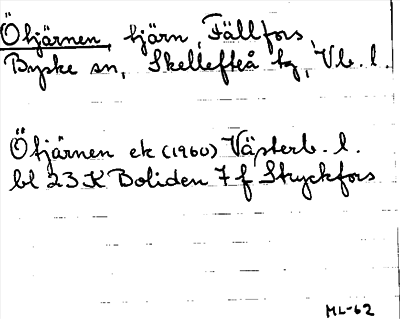 Öhjärnen, hjärn, Fällfors,
Byske sn, Skellefteå tg, Vb. l.
Öhjärnen ek (1960) Västerb. l.
bl 23 K Boliden 7 f Stryckfors
ML-62